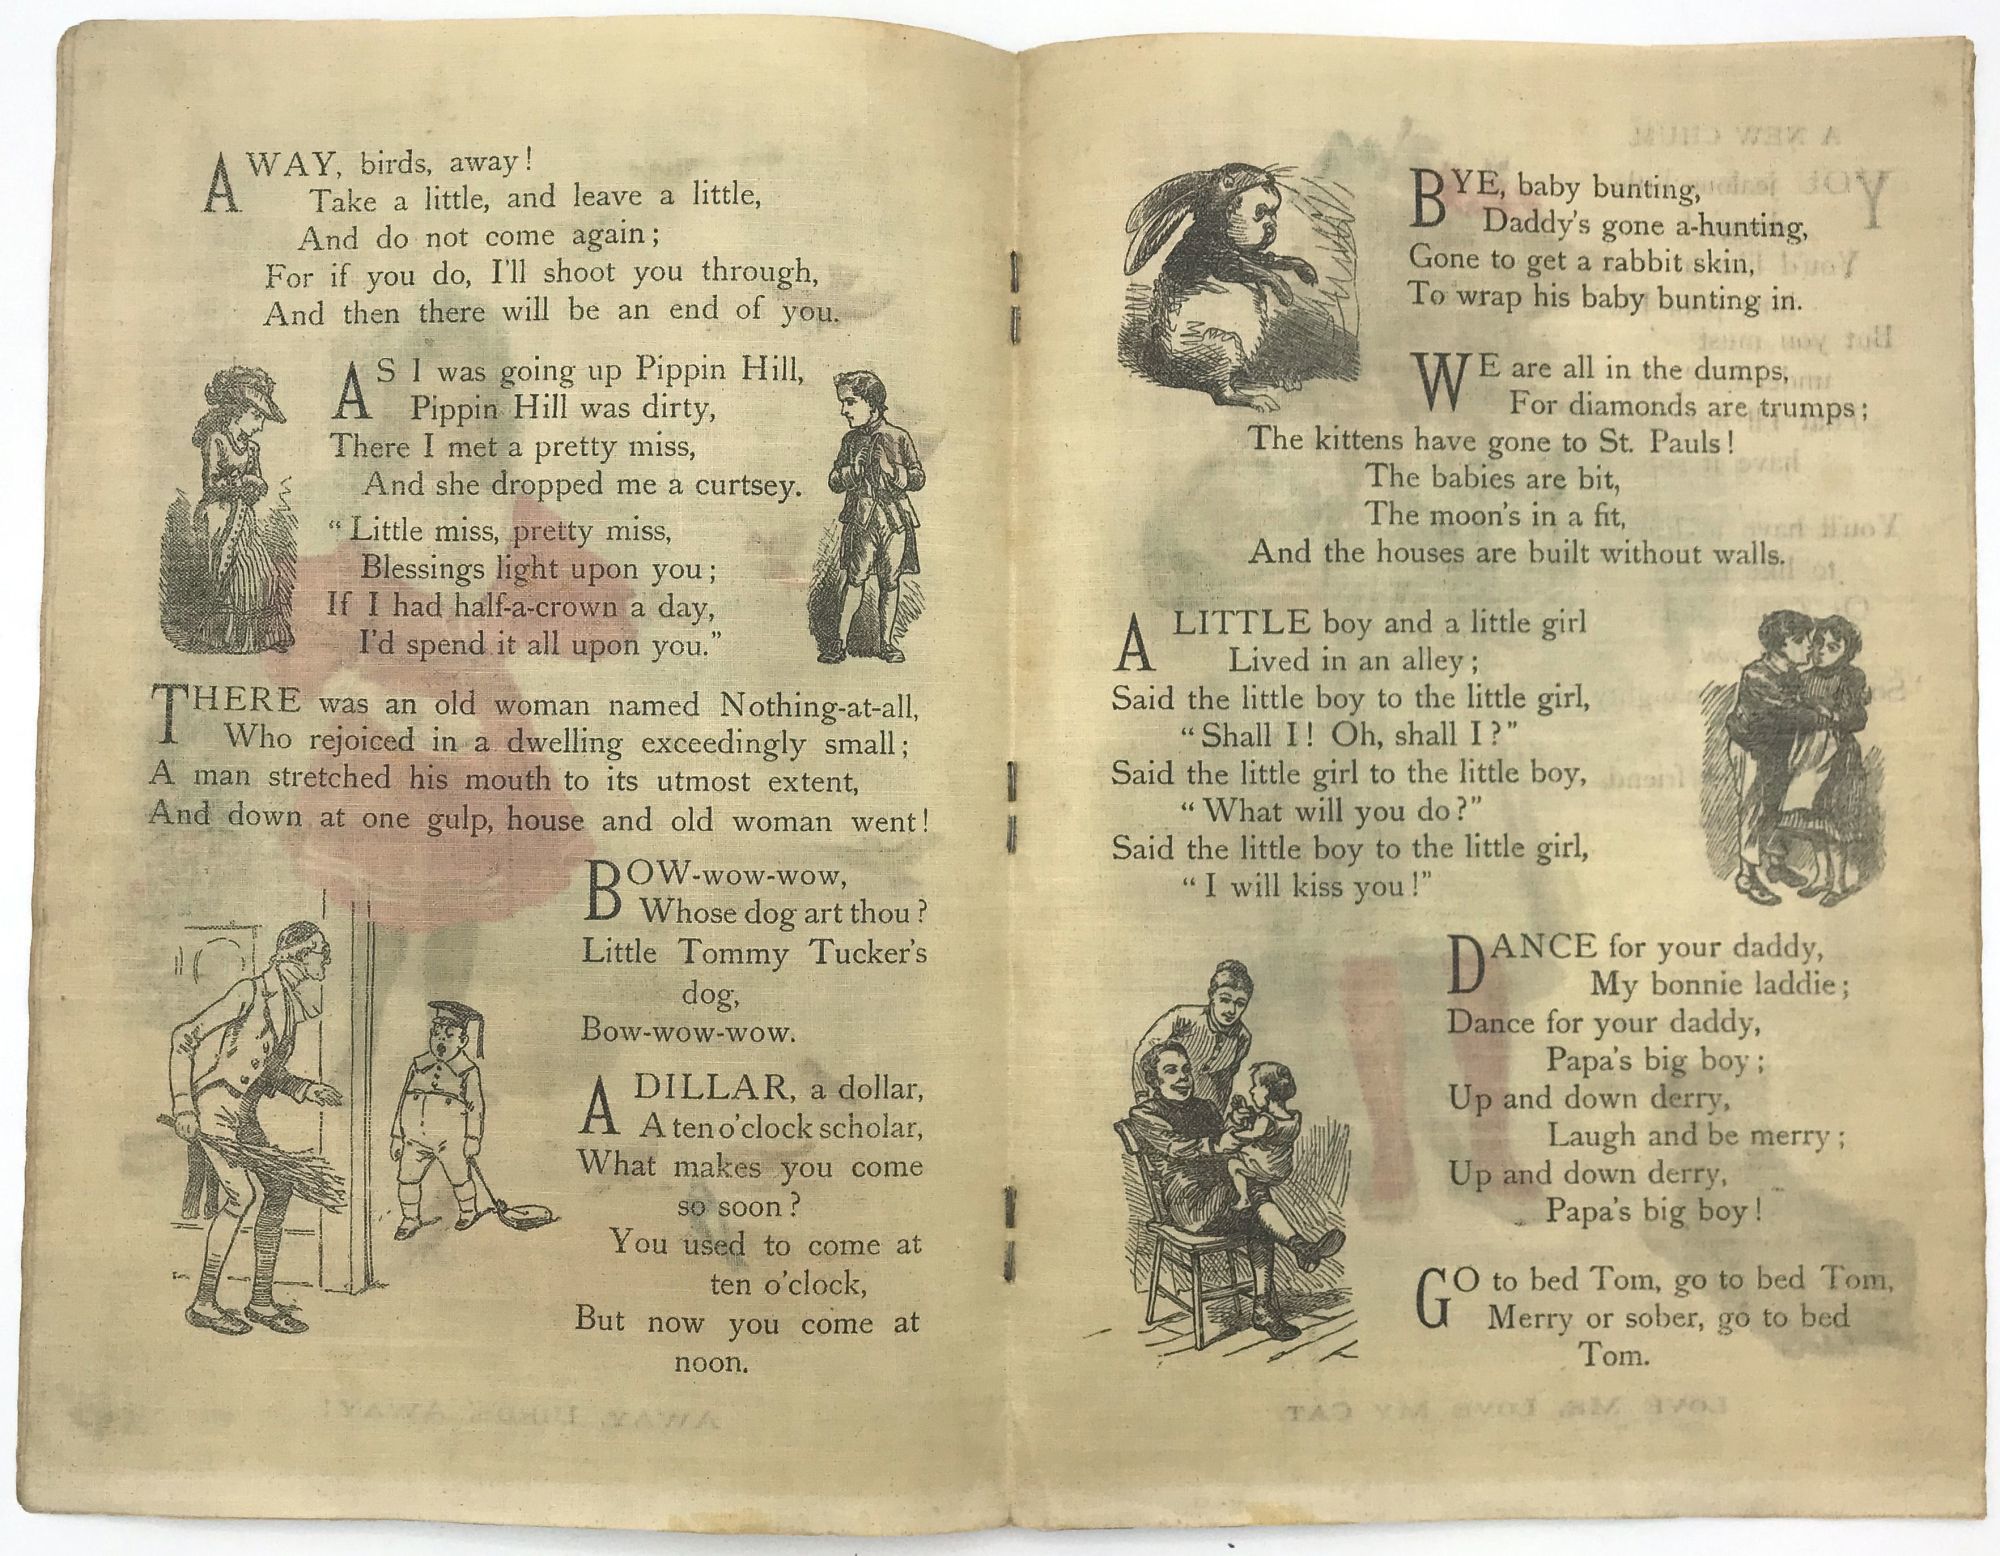 AWAY, birds, away!
Take a little, and leave a little,
And do not come again;
For if you do, I'll shoot you through,
And then there will be an end of you.
AS I was going up Pippin Hill,
Pippin Hill was dirty,
There I met a pretty miss,
And she dropped me a curtsey.
“Little miss, pretty miss,
Blessings light upon you;
If I had half-a-crown a day,
I'd spend it all upon you.”
THERE was an old woman named Nothing-at-all,
Who rejoiced in a dwelling exceedingly small;
A man stretched his mouth to its utmost extent,
And down at one gulp, house and old woman went!
BOW-wow-wow,
Whose dog art thou?
Little Tommy Tucker's
dog,
Bow-wow-wow.
A DILLAR, a dollar,
A ten o'clock scholar,
What makes you come
so soon?
You used to come at
ten o'clock,
But now you come at
noon.
AWAY, BIRDS, AWAY!
BYE, baby bunting,
Daddy's gone a-hunting,
Gone to get a rabbit skin,
To wrap his baby bunting in.
WE are all in the dumps,
For diamonds are trumps;
The kittens have gone to St. Pauls!
The babies are bit,
The moon's in a fit,
And the houses are built without walls.
A LITTLE boy and a little girl
Lived in an alley;
Said the little boy to the little girl,
“Shall I! Oh, shall I?”
Said the little girl to the little boy,
“What will you do?”
Said the little boy to the little girl,
“I will kiss you!”
DANCE for your daddy,
My bonnie laddie;
Dance for your daddy,
Papa's big boy;
Up and down derry,
Laugh and be merry;
Up and down derry,
Papa's big boy!
GO to bed Tom, go to bed Tom,
Merry or sober, go to bed
Tom.
LOVE ME, LOVE MY CAT
A NEW CHUM